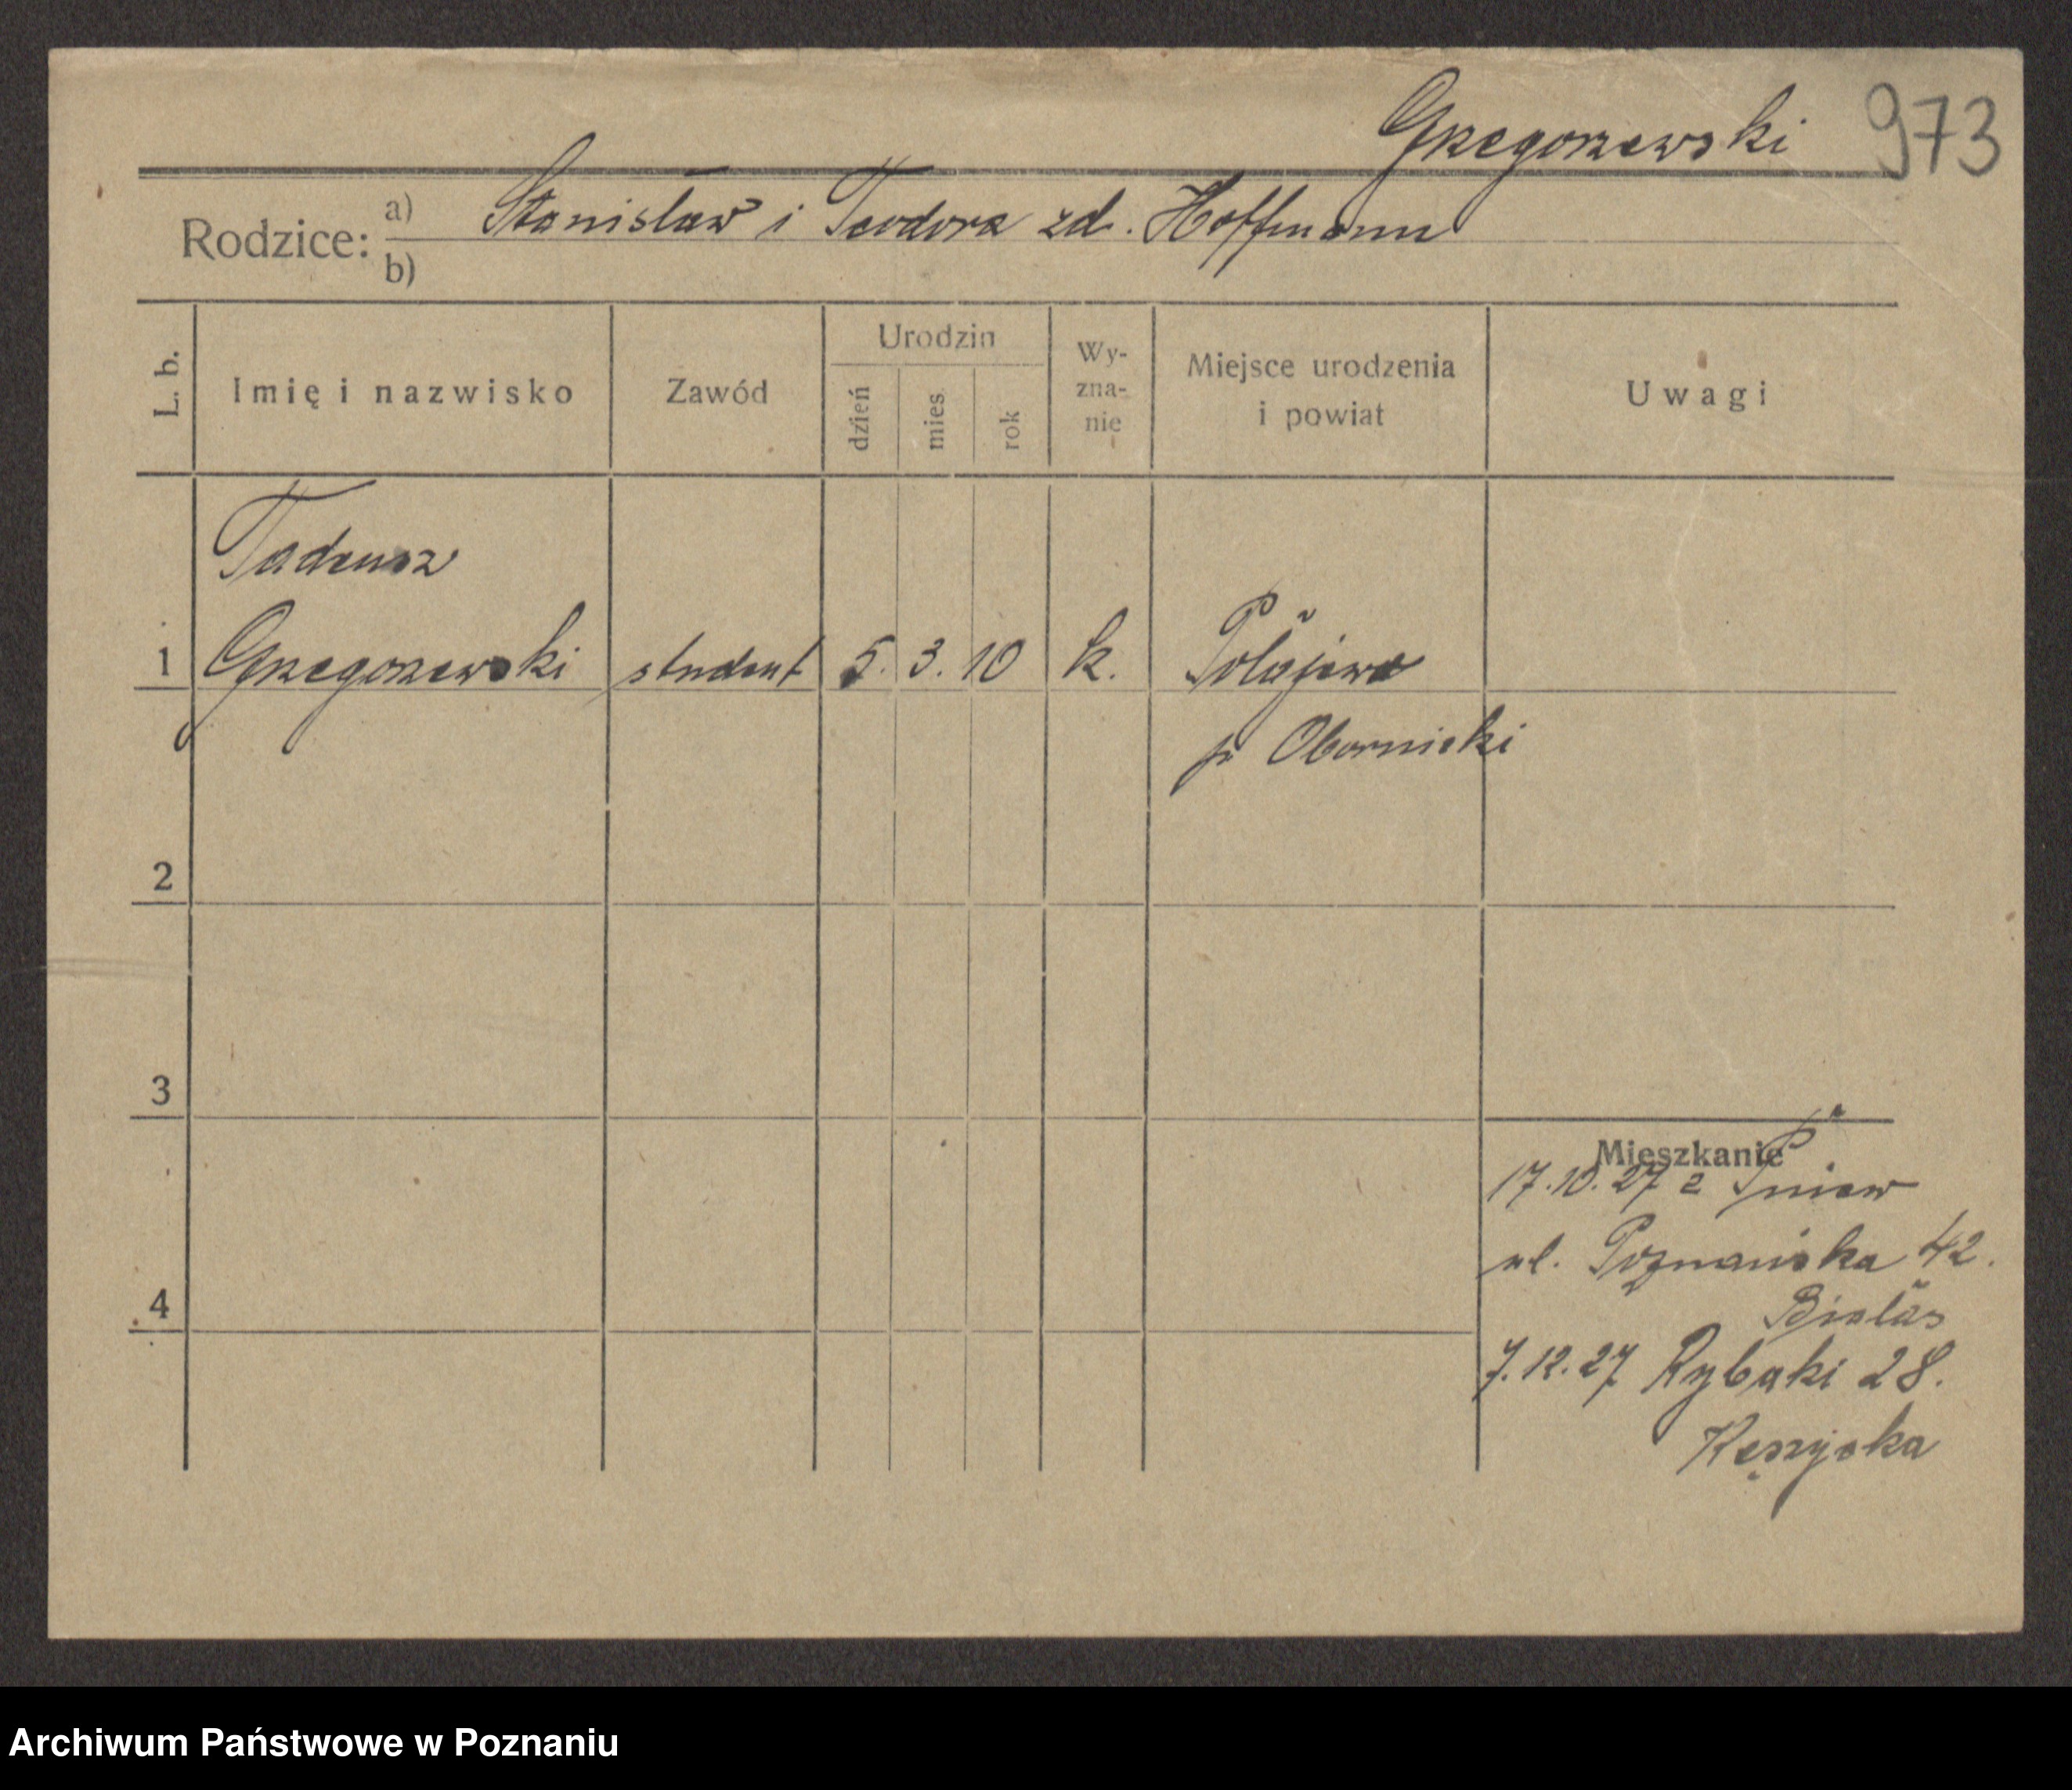 Grzegorzewski 973
Rodzice: a) Stanisław i Teodora zd. Hoffmann
b)
L. b. Imię i nazwisko Zawód Urodzin dzień mies. rok Wy-
zna-
nie Miejsce urodzenia
i powiat Uwagi
Tadeusz
1 Grzegorzewski student 5. 3. 10 k. Połajewo
p Obornicki
2
3
Mieszkanie
17.10.27 z Pniew
ul. Poznańska 42.
Białas
4
7.12.27 Rybaki 28.
Kęszycka
Archiwum Państwowe w Poznaniu